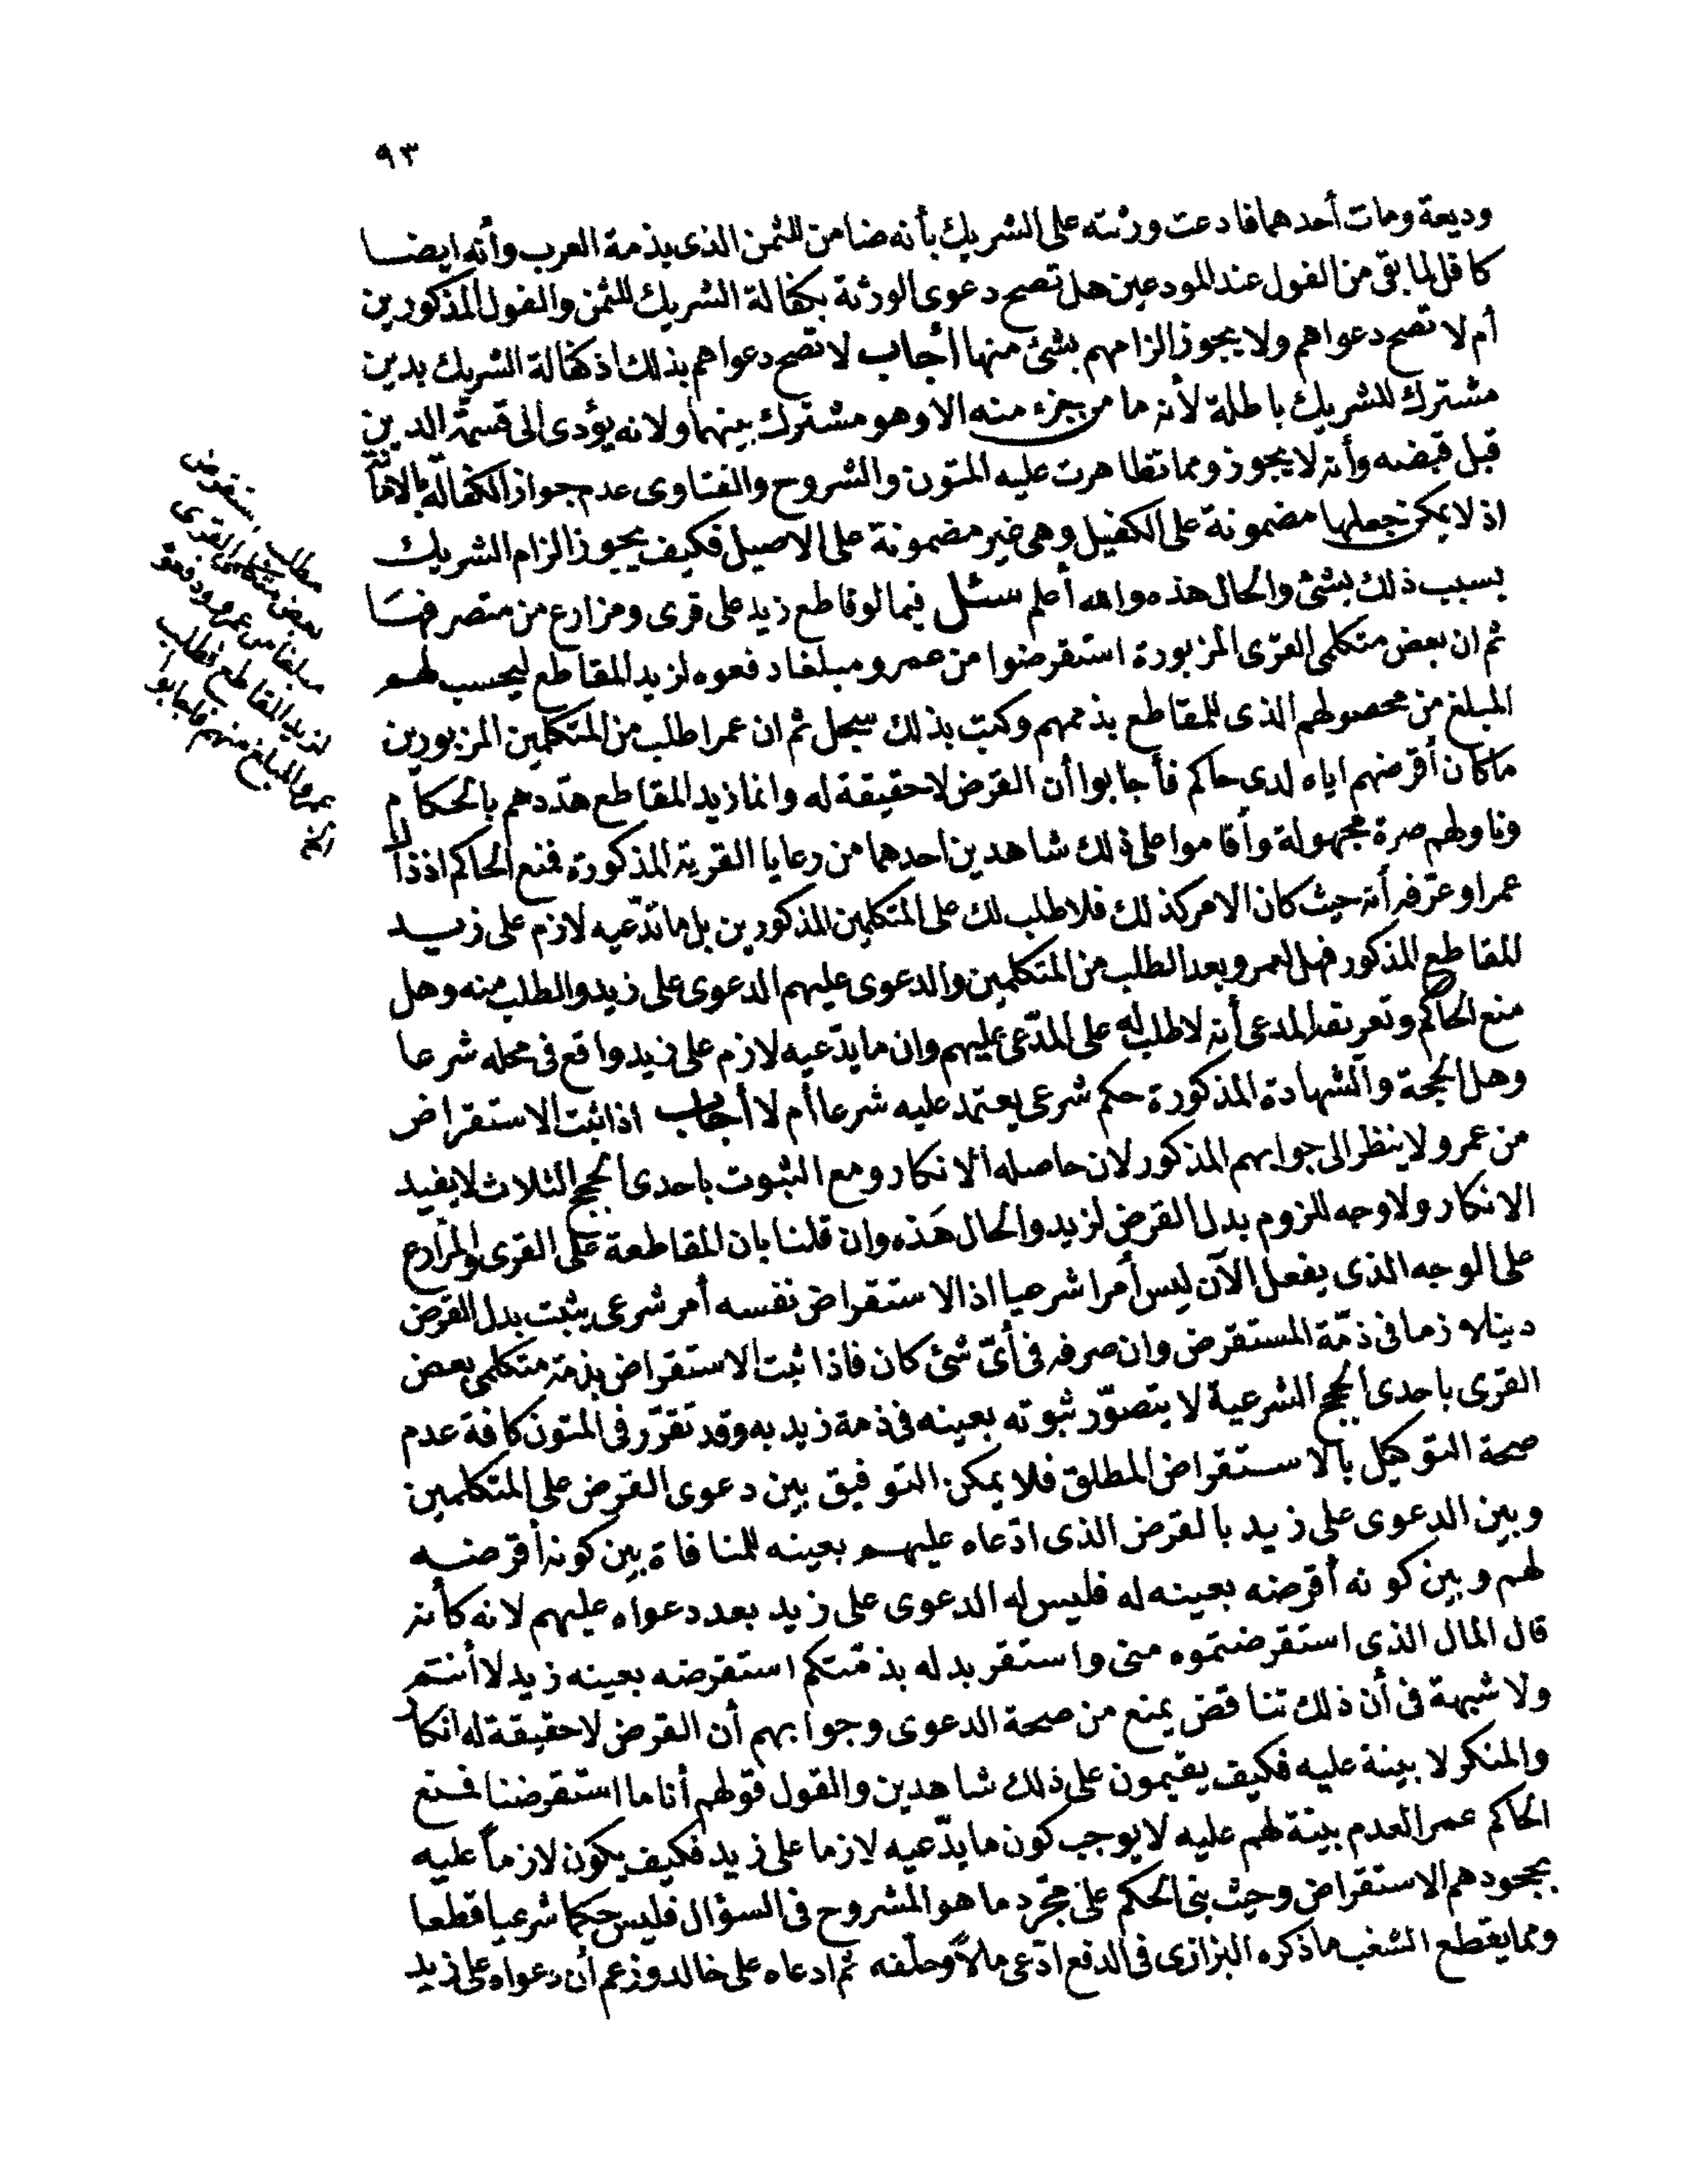 ٩٣
وديعة ومات أحدهما فادعت ورثته على الشريك بأنه ضامن للثمن الذى بذمة العرب وأنه ايضا
كافل لما بقى من الفول عند المودعين هل تصح دعوى الورثة بكفالة الشريك للثمن والفول المذكورين
أم لا تصح دعواهم ولا يجوز الزامهم بشئ منها أجاب لا تصح دعواهم بذلك اذ كفالة الشريك بدين
مشترك للشريك باطلة لأنه ما من جزء منه الا وهو مشترك بينهما ولانه يؤدى الى قسمة الدين
قبل قبضه وأنه لا يجوز ومما تظاهرت عليه المتون والشروح والفتاوى عدم جواز الكفالة بالامانة
اذ لا يمكن جعلها مضمونة على الكفيل وهى غير مضمونة على الاصيل فكيف يجوز الزام الشريك
بسبب ذلك بشئ والحال هذه والله أعلم سئل فيما لو قاطع زيد على قرى ومزارع من متصرفها
ثم ان بعض متكلمى القرى المزبورة استقرضوا من عمرو مبلغا دفعوه لزيد المقاطع ليحسب لهم
المبلغ من محصولهم الذى للمقاطع بذممهم وكتب بذلك سجل ثم ان عمرا طلب من المتكلمين المزبورين
ما كان أقرضهم اياه لدى حاكم فأجابوا أن القرض لا حقيقة له وانما زيد المقاطع هددهم بالحكام
وناولهم صرة مجهولة وأقاموا على ذلك شاهدين احدهما من رعايا القرية المذكورة فمنع الحاكم اذ ذاك
عمرا وعرّفه أنه حيث كان الامر كذلك فلا طلب لك على المتكلمين المذكورين بل ما تدّعيه لازم على زيد
المقاطع المذكور فهل لعمرو بعد الطلب من المتكلمين والدعوى عليهم الدعوى على زيد والطلب منه وهل
منع الحاكم وتعريفه المدعى أنه لا طلب له على المدّعى عليهم وان ما يدّعيه لازم على زيد واقع فى محله شرعا
وهل الحجة والشهادة المذكورة حكم شرعى يعتمد عليه شرعا أم لا أجاب اذا ثبت الاستقراض
من عمرو لا ينظر الى جوابهم المذكور لان حاصله الانكار ومع الثبوت باحدى الحجج الثلاث لا يفيد
الانكار ولا وجه للزوم بدل القرض لزيد والحال هذه وان قلنا بان المقاطعة على القرى والمزارع
على الوجه الذى يفعل الآن ليس أمرا شرعيا اذ الاستقراض نفسه أمر شرعى يثبت بدل القرض
دينا لازما فى ذمّة المستقرض وان صرفه فى أىّ شئ كان فاذا ثبت الاستقراض بذمة متكلمى بعض
القرى باحدى الحجج الشرعية لا يتصوّر ثبوته بعينه فى ذمة زيد به وقد تقرّر فى المتون كافة عدم
صحة التوكيل بالاستقراض المطلق فلا يمكن التوفيق بين دعوى القرض على المتكلمين
وبين الدعوى على زيد بالقرض الذى ادّعاه عليهم بعينه للمنافاة بين كونه أقرضه
لهم وبين كونه أقرضه بعينه له فليس له الدعوى على زيد بعد دعواه عليهم لانه كأنه
قال المال الذى استقرضتموه منى واستقر بدله بذمّتكم استقرضه بعينه زيد لا أنتم
ولا شبهة فى أن ذلك تناقض يمنع من صحة الدعوى وجوابهم أن القرض لا حقيقة له انكار
والمنكر لا بينة عليه فكيف يقيمون على ذلك شاهدين والقول قولهم أنا ما استقرضنا فمنع
الحاكم عمرا لعدم بينة لهم عليه لا يوجب كون ما يدّعيه لازما على زيد فكيف يكون لازماً عليه
بجحودهم الاستقراض وحيث بنى الحكم على مجرّد ما هو المشروح فى السؤال فليس حكما شرعيا قطعا
ومما يقطع الشغب ما ذكره البزازى فى الدفع ادّعى مالاً وحلّفه ثم ادعاه على خالد وزعم أن دعواه على زيد
مطلب استقرض
بعض متكلمى القرى
مبلغا من عمرو ودفعوه
لزيد المقاطع فطلب
عمرو المبلغ منهم فاجابوا
الخ